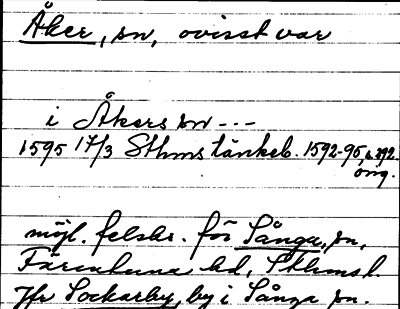 Åker, sn, ovisst var
i Åkers sn ---
1595 17/3 Sthms tänkeb. 1592-95, s. 392.
orig.
möjl. felskr. för Sånga, sn,
Färentuna hd, Sthmsl.
Jfr Sockarby, by i Sånga sn.